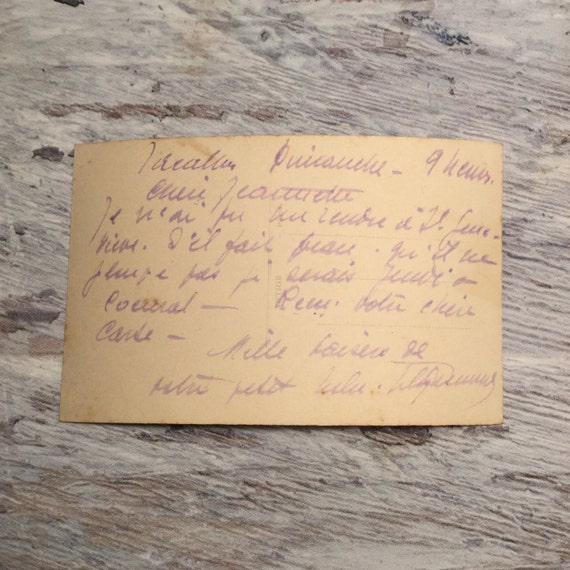 Dimanche - 9 heures.
Cher Jeannette
Je n'ai pu me rendre à St. Gene-
viève. S'il fait beau. qu'il ne
pas je serais jeudi à
- Reçu votre chère
Carte -
Mille baisers de
votre petit